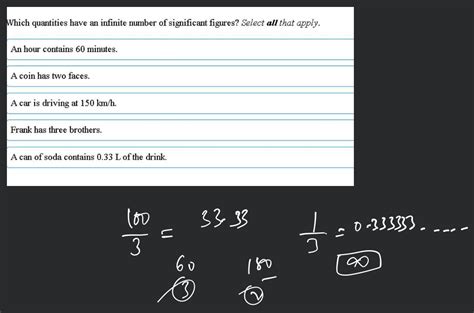 Which quantities have an infinite number of significant figures? Select all that apply.
An hour contains 60 minutes.
A coin has two faces.
A car is driving at 150 km/h.
Frank has three brothers.
A can of soda contains 0.33 L of the drink.
100/3 = 33.33
1/3 = 0.333333.-----
60 180 ∞
3 2